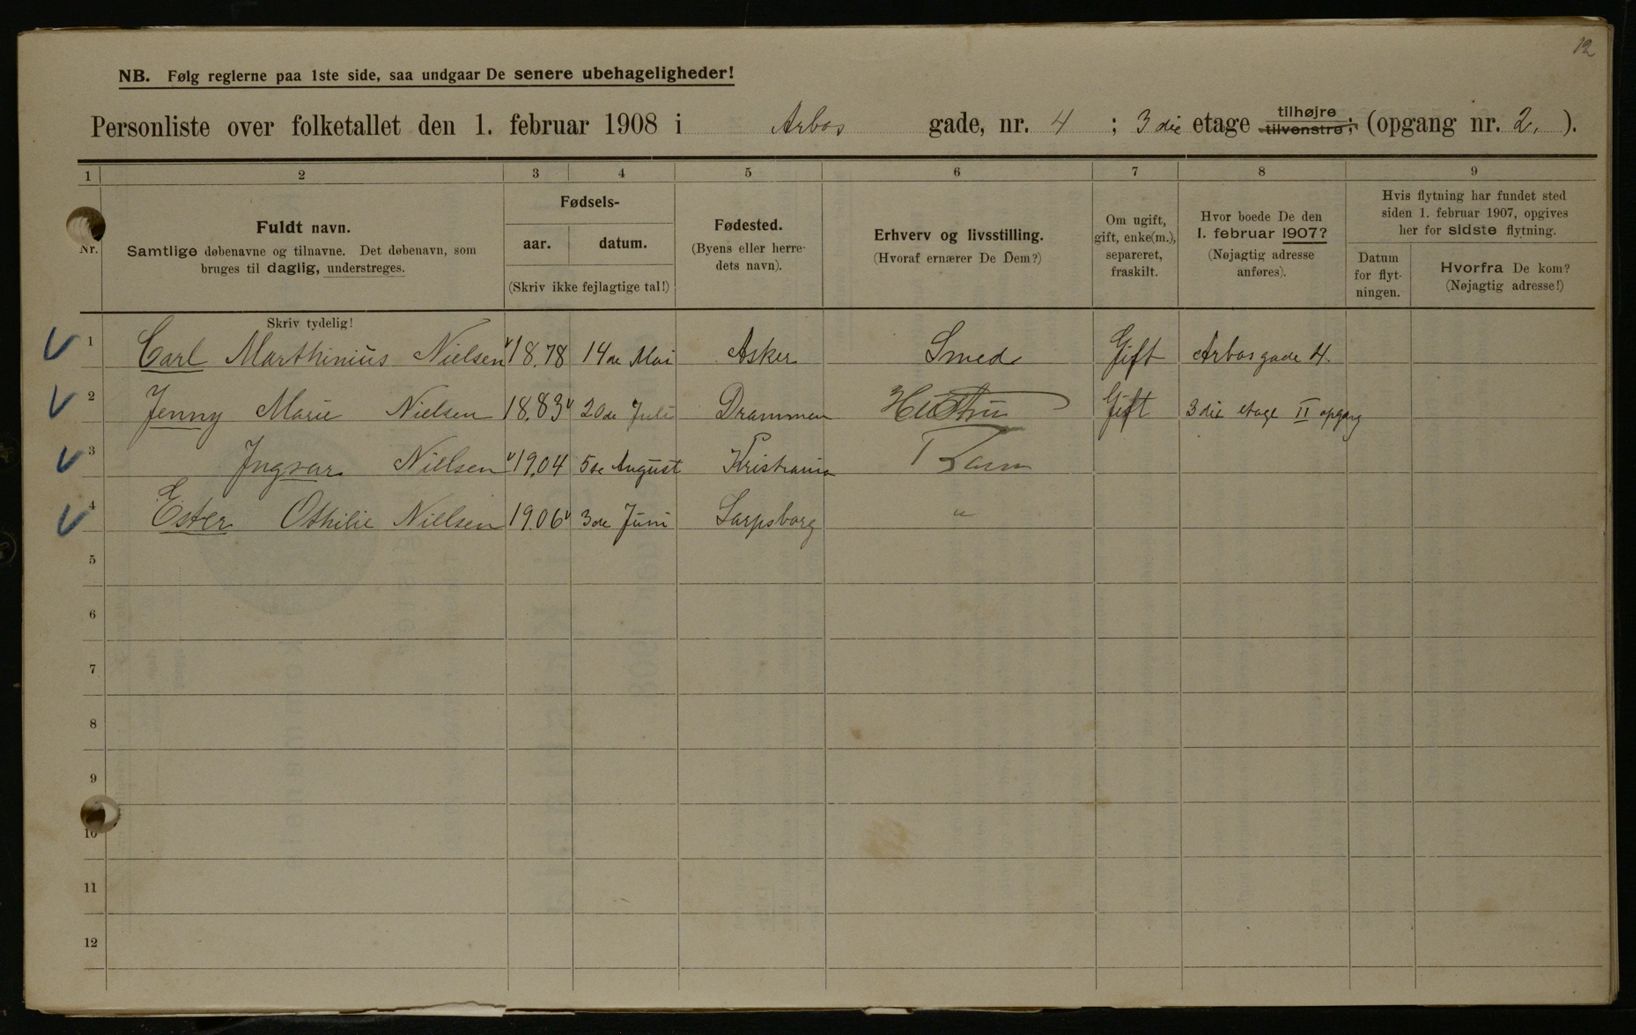 12
NB. Følg reglerne paa 1ste side, saa undgaar De senere ubehageligheder!
Personliste over folketallet den 1. februar 1908 i Arbos gade, nr. 4 ; 3die etage tilhøjre tilvenstre; (opgang nr. 2. ).
1 2 3 4 5 6 7 8 9
Nr.
Fuldt navn.
Samtlige døbenavne og tilnavne. Det døbenavn, som
bruges til daglig, understreges.
Fødsels-
aar. datum.
(Skriv ikke fejlagtige tal!)
Fødested.
(Byens eller herre-
dets navn).
Erhverv og livsstilling.
(Hvoraf ernærer De Dem?)
Om ugift,
gift, enke(m.),
separeret,
fraskilt.
Hvor boede De den
1. februar 1907?
(Nøjagtig adresse
anføres).
Hvis flytning har fundet sted
siden 1. februar 1907, opgives
her for sidste flytning.
Datum
for flyt-
ningen.
Hvorfra De kom?
(Nøjagtig adresse!)
Skriv tydelig!
1 Carl Marthinius Nielsen 18.78 14de Mai Asker Smed Gift Arbosgade 4.
2 Jenny Marie Nielsen 18.83 20de Juli Drammen Hustru Gift 3die etage II opgang
3 Ingvar Nielsen 19.04 5te August Kristiania Barn
4 Ester Othilie Nielsen 19.06 3de Juni Sarpsborg "
5
6
7
8
9
10
11
12